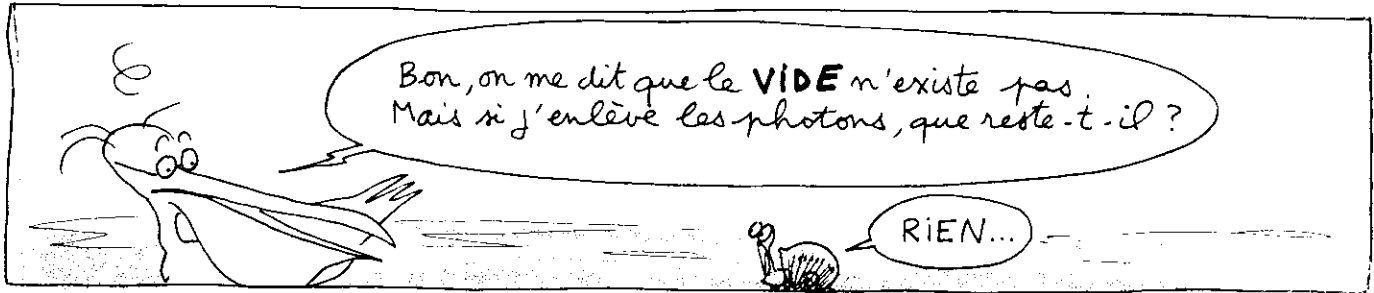 Bon, on me dit que le VIDE n'existe pas.
Mais si j'enlève les photons, que reste-t-il ?
RiEN...